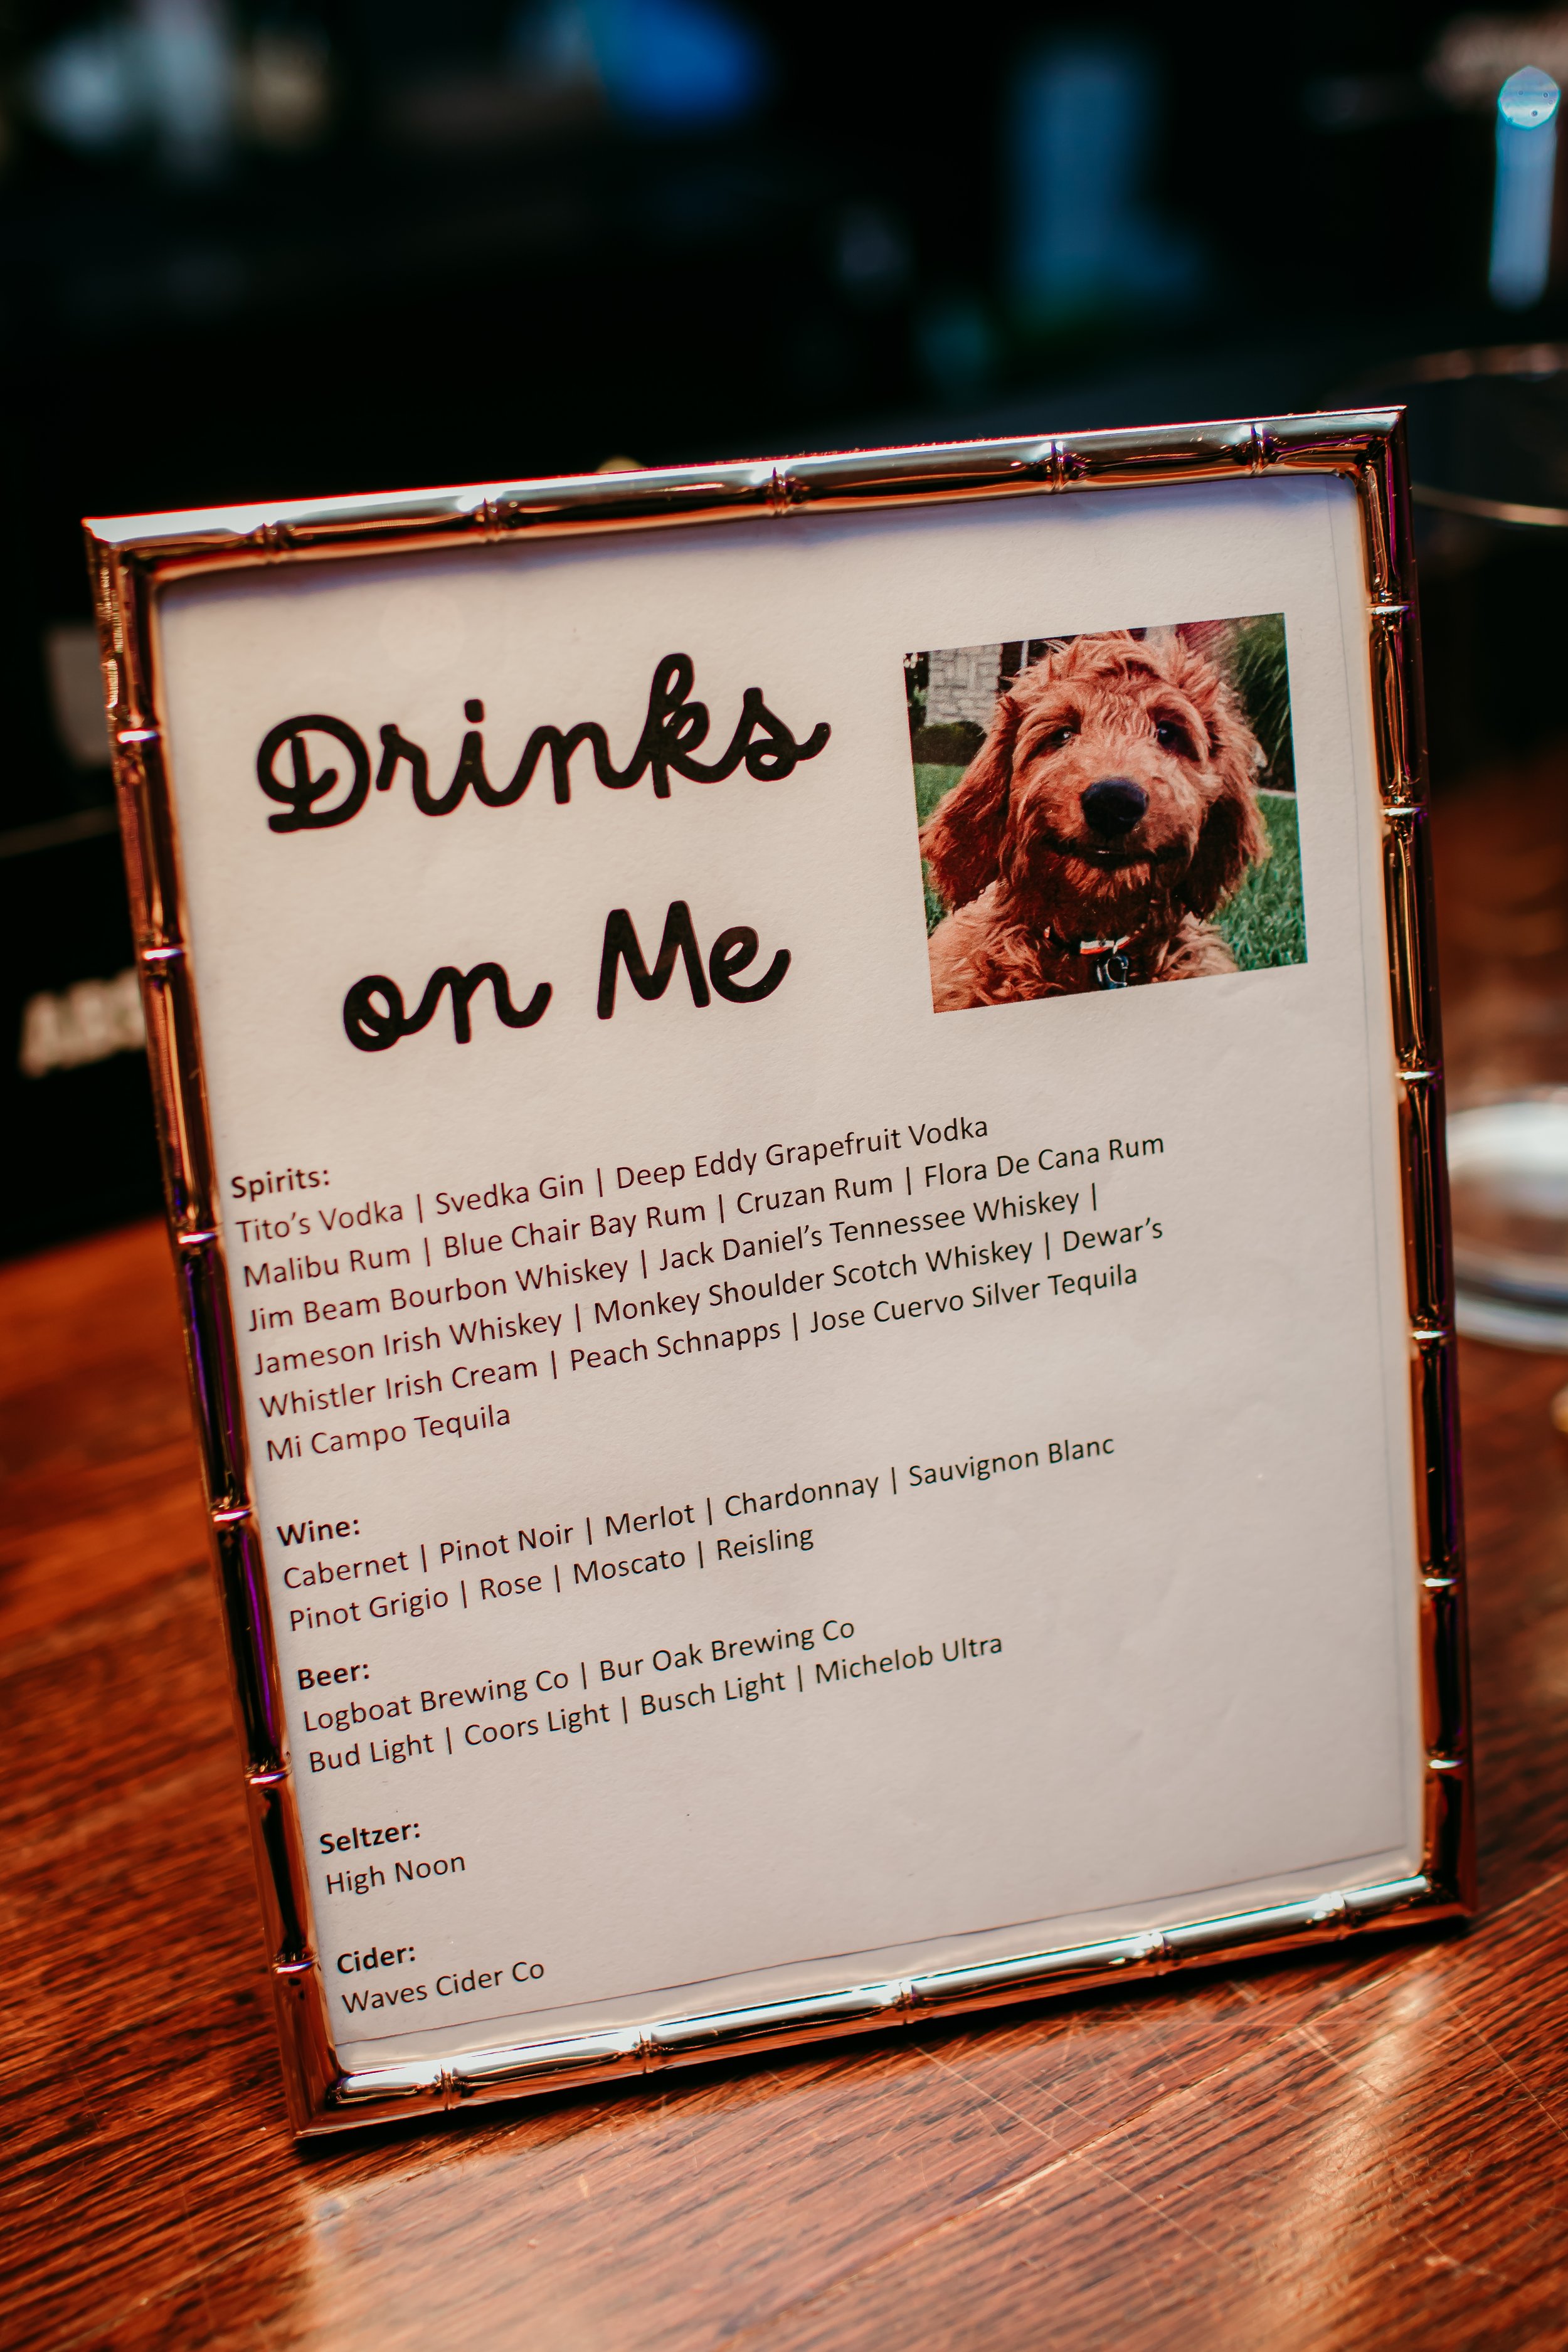 Drinks
on Me
Spirits:
Tito's Vodka | Svedka Gin | Deep Eddy Grapefruit Vodka
Malibu Rum | Blue Chair Bay Rum | Cruzan Rum | Flora De Cana Rum
Jim Beam Bourbon Whiskey | Jack Daniel's Tennessee Whiskey |
Jameson Irish Whiskey | Monkey Shoulder Scotch Whiskey | Dewar's
Whistler Irish Cream | Peach Schnapps | Jose Cuervo Silver Tequila
Mi Campo Tequila
Wine:
Cabernet | Pinot Noir | Merlot | Chardonnay | Sauvignon Blanc
Pinot Grigio | Rose | Moscato | Reisling
Beer:
Logboat Brewing Co | Bur Oak Brewing Co
Bud Light | Coors Light | Busch Light | Michelob Ultra
Seltzer:
High Noon
Cider:
Waves Cider Co